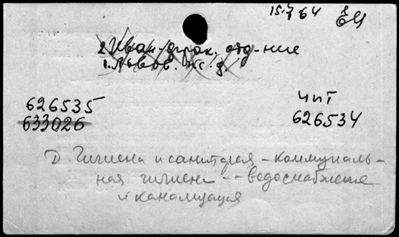 15.7 64
2 Иван-франк. отд-ние
1. Львов. ж. д.
626535
633026
чит
626534
Д. Гигиена и санитария - коммуналь-
ная гигиена - водоснабжение
и канализация